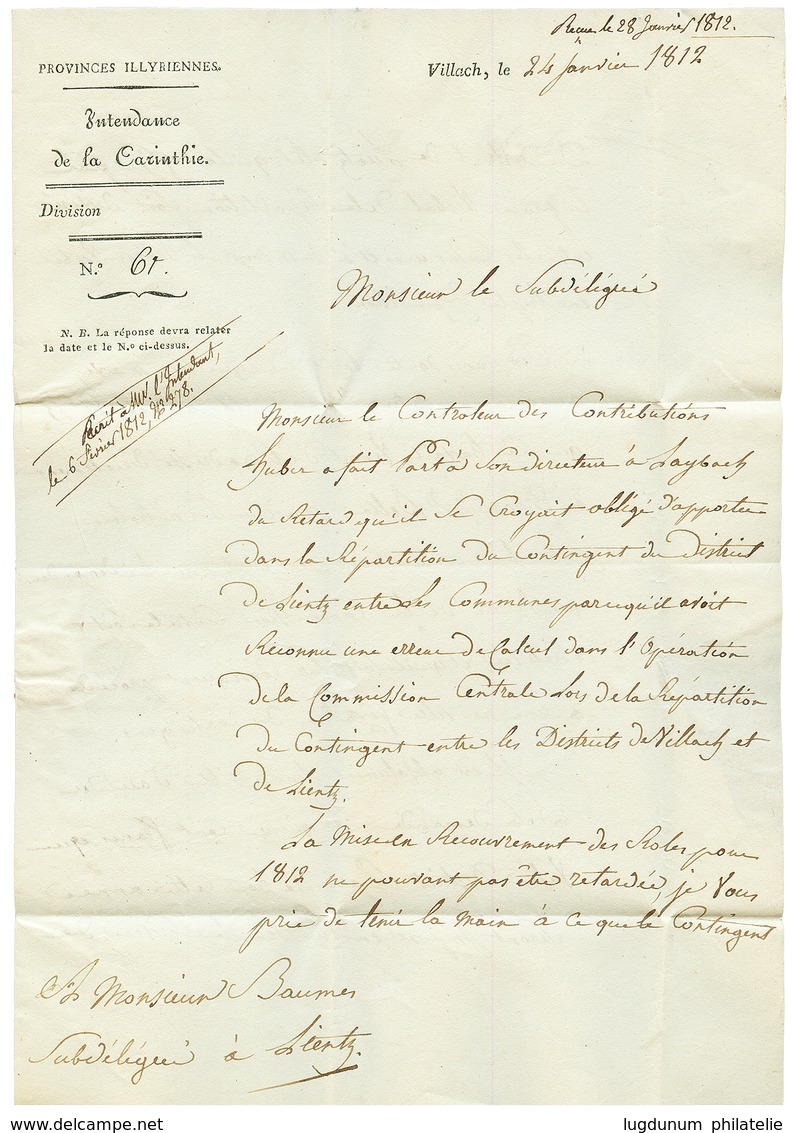 Recue le 28 Janvier 1812.
PROVINCES ILLYRIENNES.
Villach, le 24 janvier 1812
Intendance
de la Carinthie.
Division
N.º 61.
Monsieur le Subdélégué
N. B. La réponse devra relater
la date et le N.º ci-dessus.
Ecrit à Mr. l'Intendant,
le 6 Février 1812, No 278.
Monsieur le Controleur des Contributions
huber a fait Part à Son directeur à Laybach
du Retard qu'il Se Croyait obligé d'apporter
dans la Répartition du Contingent du District
de Lientz entre les Communes parcequ'il avoit
Reconnu une erreur de Calcul dans l'Opération
de la Commission Centrale lors de la Répartition
du Contingent entre les Districts de Villach et
de Lientz.
La Mise en Recouvrement des Roles pour
1812 ne pouvant pas être retardée, je Vous
prie de tenir la Main à ce que le Contingent
A Monsieur Baumes
Subdélégué à Lientz.
www.delcampe.net
lugdunum philatelie